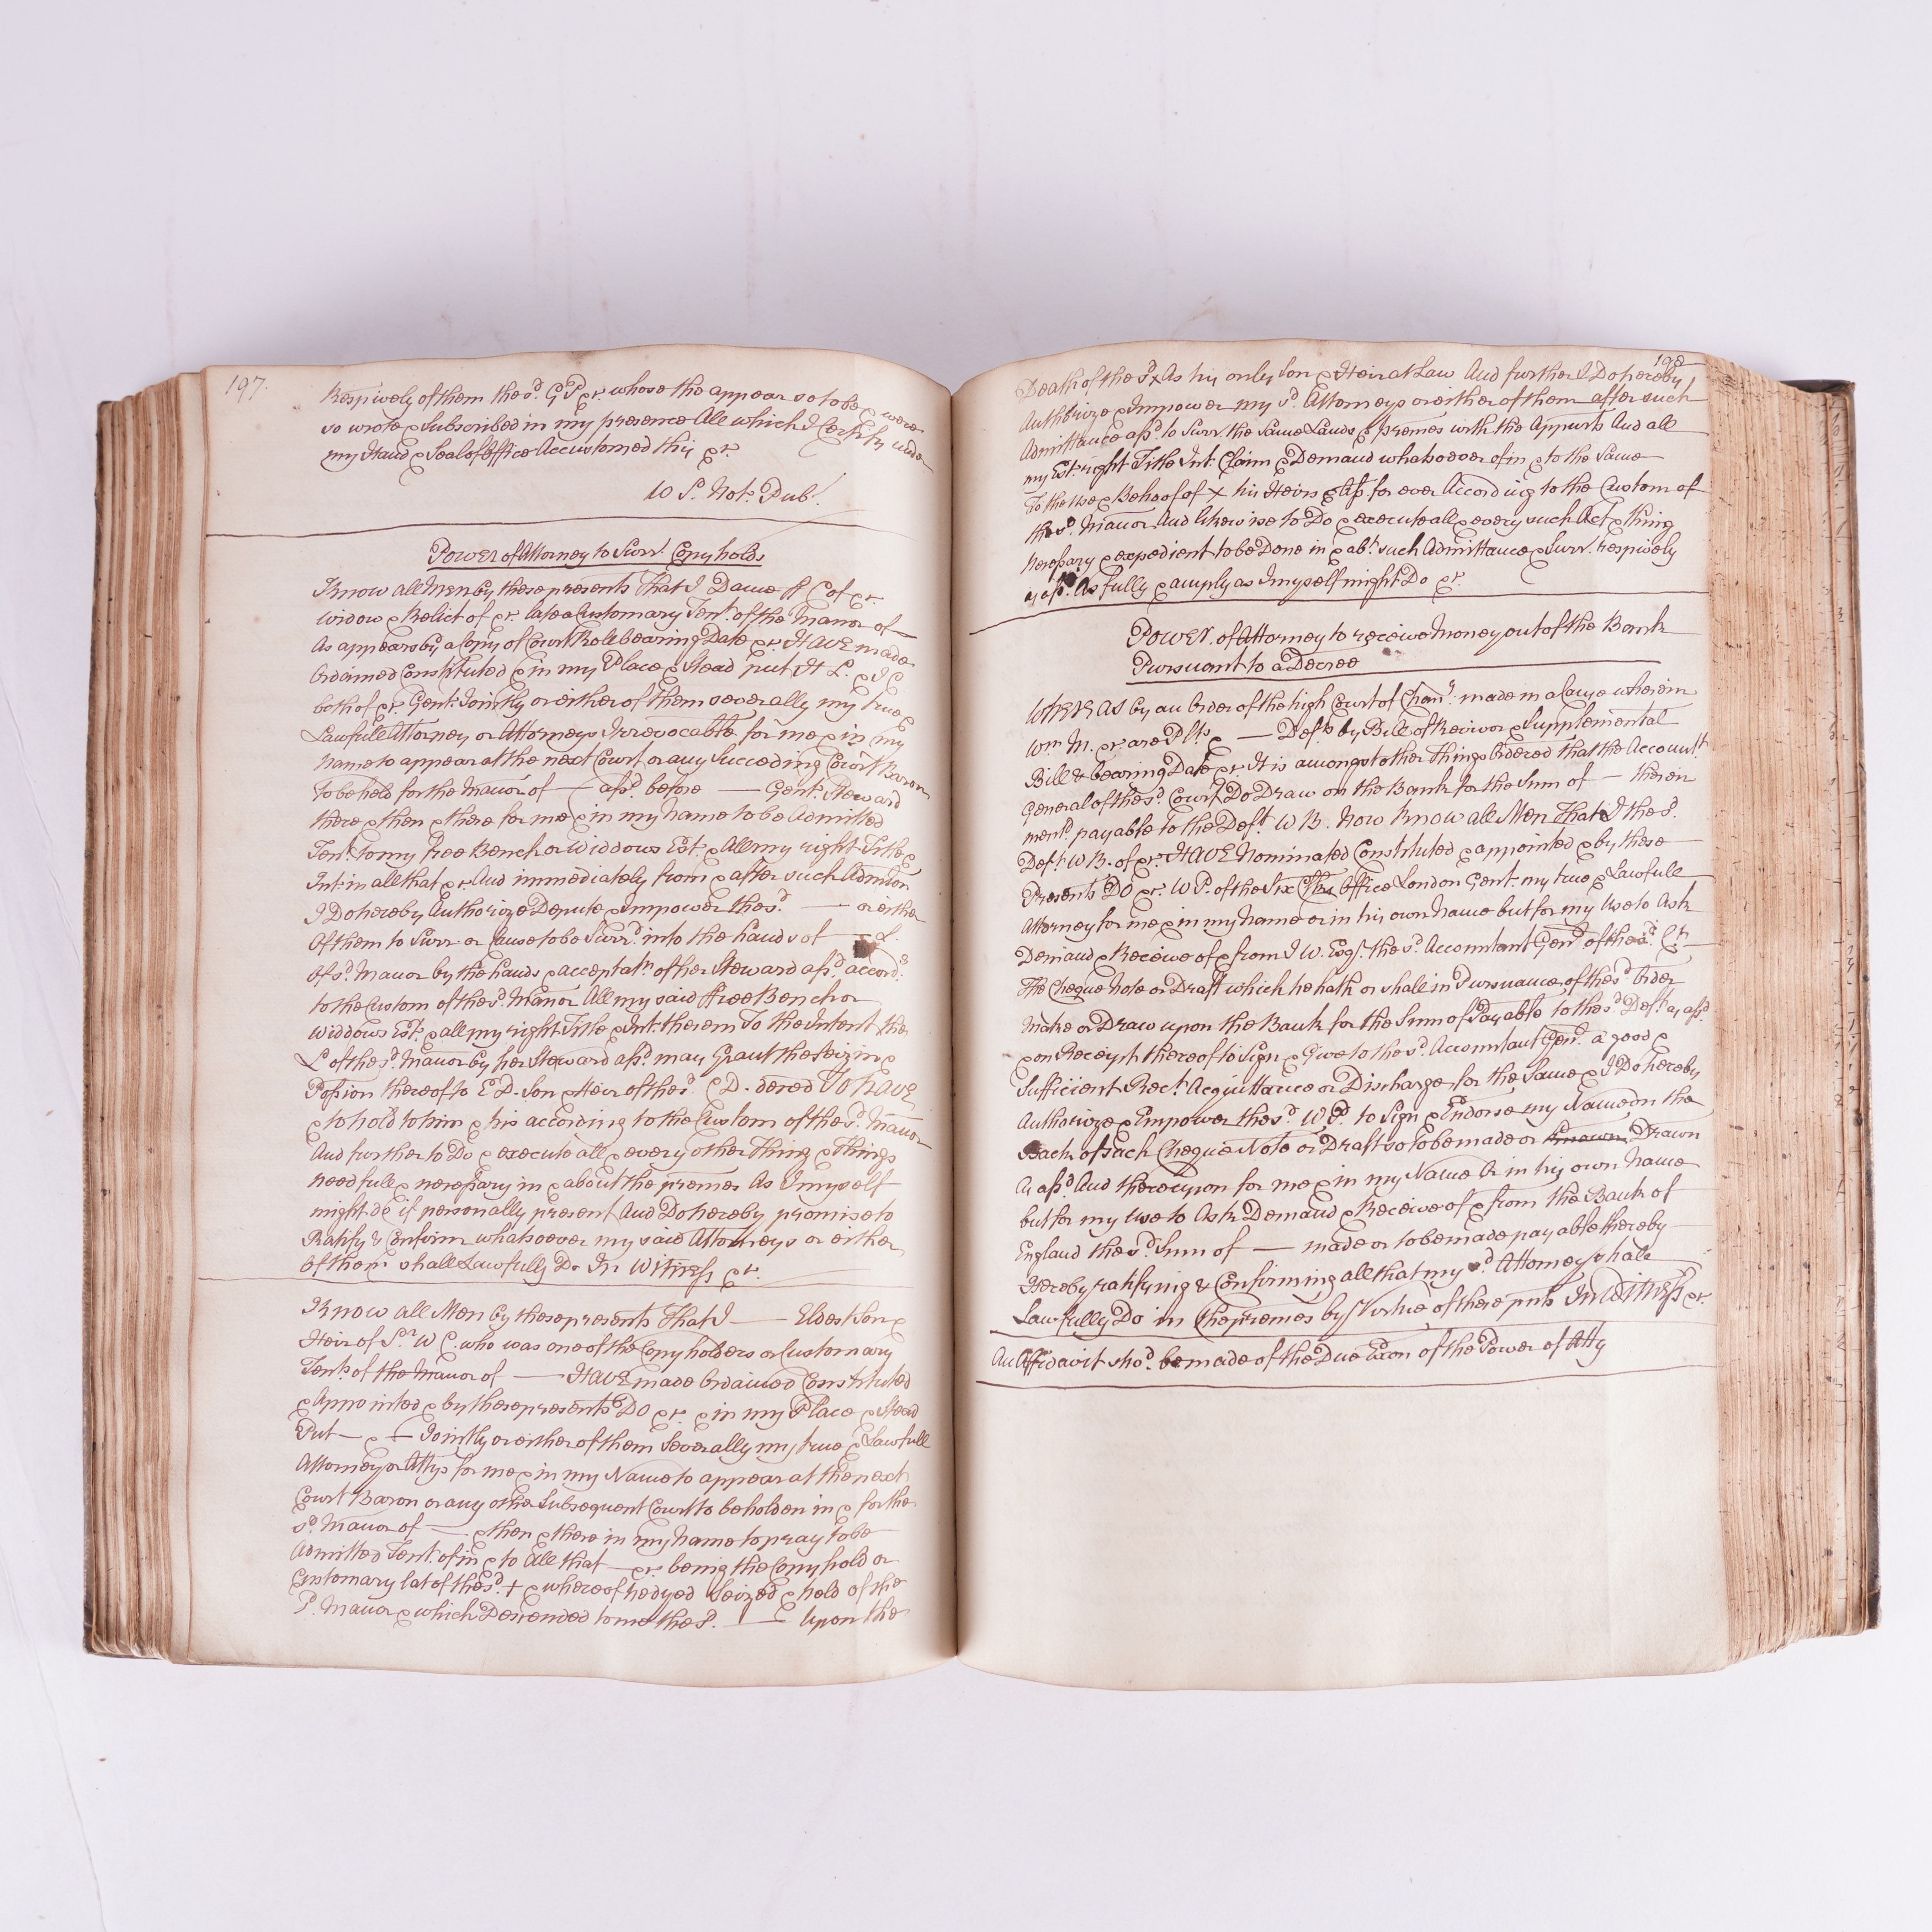 197.
Respively of them the sd. G P &c. whose the appear so to be & were
so wrote & Subscribed in my presence All which I Certify under
my Hand & Seal of Office Accustomed this &c.
W S. Not: Pub:
Power of Attorney to Surr. Copyholds
Know all Men by these presents That I Dame ff C of &c.
Widow & Relict of &c. late a Customary Tent. of the Manor of —
As appears by a Copy of Court Roll bearing Date &c. HAVE made
Ordained Constituted & in my Place & Stead put H L. & I C
both of &c. Gent. Jointly or either of them severally my true &
Lawfull Attorney or Attorneys Irrevocable for me & in my
Name to appear at the next Court or any Succeeding Court Baron
To be held for the Manor of — afsd. before — Gent. Steward
there & then & there for me & in my Name to be Admitted
Tent. to my free Bench or Widdows Est. & All my right Title &
Int. in all that &c. And immediately from & after such Admion
I Do hereby Authorize Depute & Impower the sd. — or either
Of them to Surr or Cause to be Surrd. into the hands of — L.
of sd. Manor by the hands & acceptats. of her Steward afsd. accordg.
to the Custom of the sd. Manor All my said ffree Bench or
Widdows Est. & all my right Title & Int. therein To the Intent the
L of the sd. Manor by her Steward afsd. may Grant the Seizin &
Possion thereof to E D. Son & Heir of the sd. C D. dered To have
& to hold to him & his according to the Custom of the sd. Manor
And further to Do & execute all & every other Thing & Things
needfull & necessary in & about the premes As I myself
might do if personally present And Do hereby promise to
Ratify & Confirm whatsoever my said Attorneys or either
of them shall Lawfully Do In Witness &c.
Know all Men by these presents That I — Eldest Son &
Heir of Sr. W C. who was one of the Copyholders or Customary
Tents. of the Manor of — HAVE made Ordained Constituted
& Appointed & by these presents DO &c. & in my Place & Stead
Put — & + Jointly or either of them Severally my true & Lawfull
Attorney or Attys for me & in my Name to appear at the next
Court Baron or any other Subsequent Court to be holden in & for the
sd. Manor of — & then & there in my Name to pray to be
Admitted Tent. of in & to All that — &c. being the Copyhold or
Customary lat of the sd. + & whereof he dyed Seized & held of the
sd. Manor & which Descended to me the sd. — Upon the
198
Death of the sd. x As his only Son & Heir at Law And further I Do hereby
Authorize & Impower my sd. Attorneys or either of them after such
Admittance afsd. to Surr. the same Lands & premes with the Appurts And all
my Est. right Title Int. Claim & Demand whatsoever of in & to the Same
To the Use & Behoof of x his Heirs & Ass for ever According to the Custom of
the sd. Manor And likewise to Do & execute all & every such Act & thing
Necessary & expedient to be Done in & abt. such Admittance & Surr. respively
as afsd. As fully & amply as I myself might Do &c.
Power. of Attorney to receive Money out of the Bank
Pursuant to a Decree
WHEREAS by an Order of the high Court of Chanry. made in a Cause wherein
Wm M. &c. are Plts. & — Defts by Bill of Revivor & Supplemental
Bill & bearing Date &c. It is amongst other things Ordered that the Accountt.
General of the sd. Court Do Draw on the Bank for the Sum of — therein
mentd. payable to the Deft. W B. Now Know all Men That I the sd.
Deft. W B. of &c. HAVE Nominated Constituted & appointed & by these
Presents DO &c. W P. of the Six Clks Office London Gent. my true & Lawfull
Attorney for me & in my Name or in his own Name but for my Use to Ask
Demand & Receive of & from I W. Esqr. the sd. Accountant Genl. of the sd. Ct.
the Cheque Note or Draft which he hath or shall in Pursuance of the sd. Order
make or Draw upon the Bank for the Sum of Payable to the sd. Deft. as afsd.
& on Receipt thereof to Sign & Give to the sd. Accountant Genl. a good &
Sufficient Rect. Acquittance or Discharge for the Same & I Do hereby
Authorize & Empower the sd. W P. to Sign & Endorse my Name on the
Back of Such Cheque Note or Draft so to be made or Drawn
As afsd. And thereupon for me & in my Name Or in his own Name
but for my Use to Ask Demand & Receive of & from the Bank of
England the sd. Sum of — made or to be made payable thereby
Hereby ratifying & Confirming all that my sd. Attorney shall
Lawfully Do in the premes by Virtue of these pnts In Witness &c.
An Affidavit shod. be made of the Due Execon of the Power of Atty